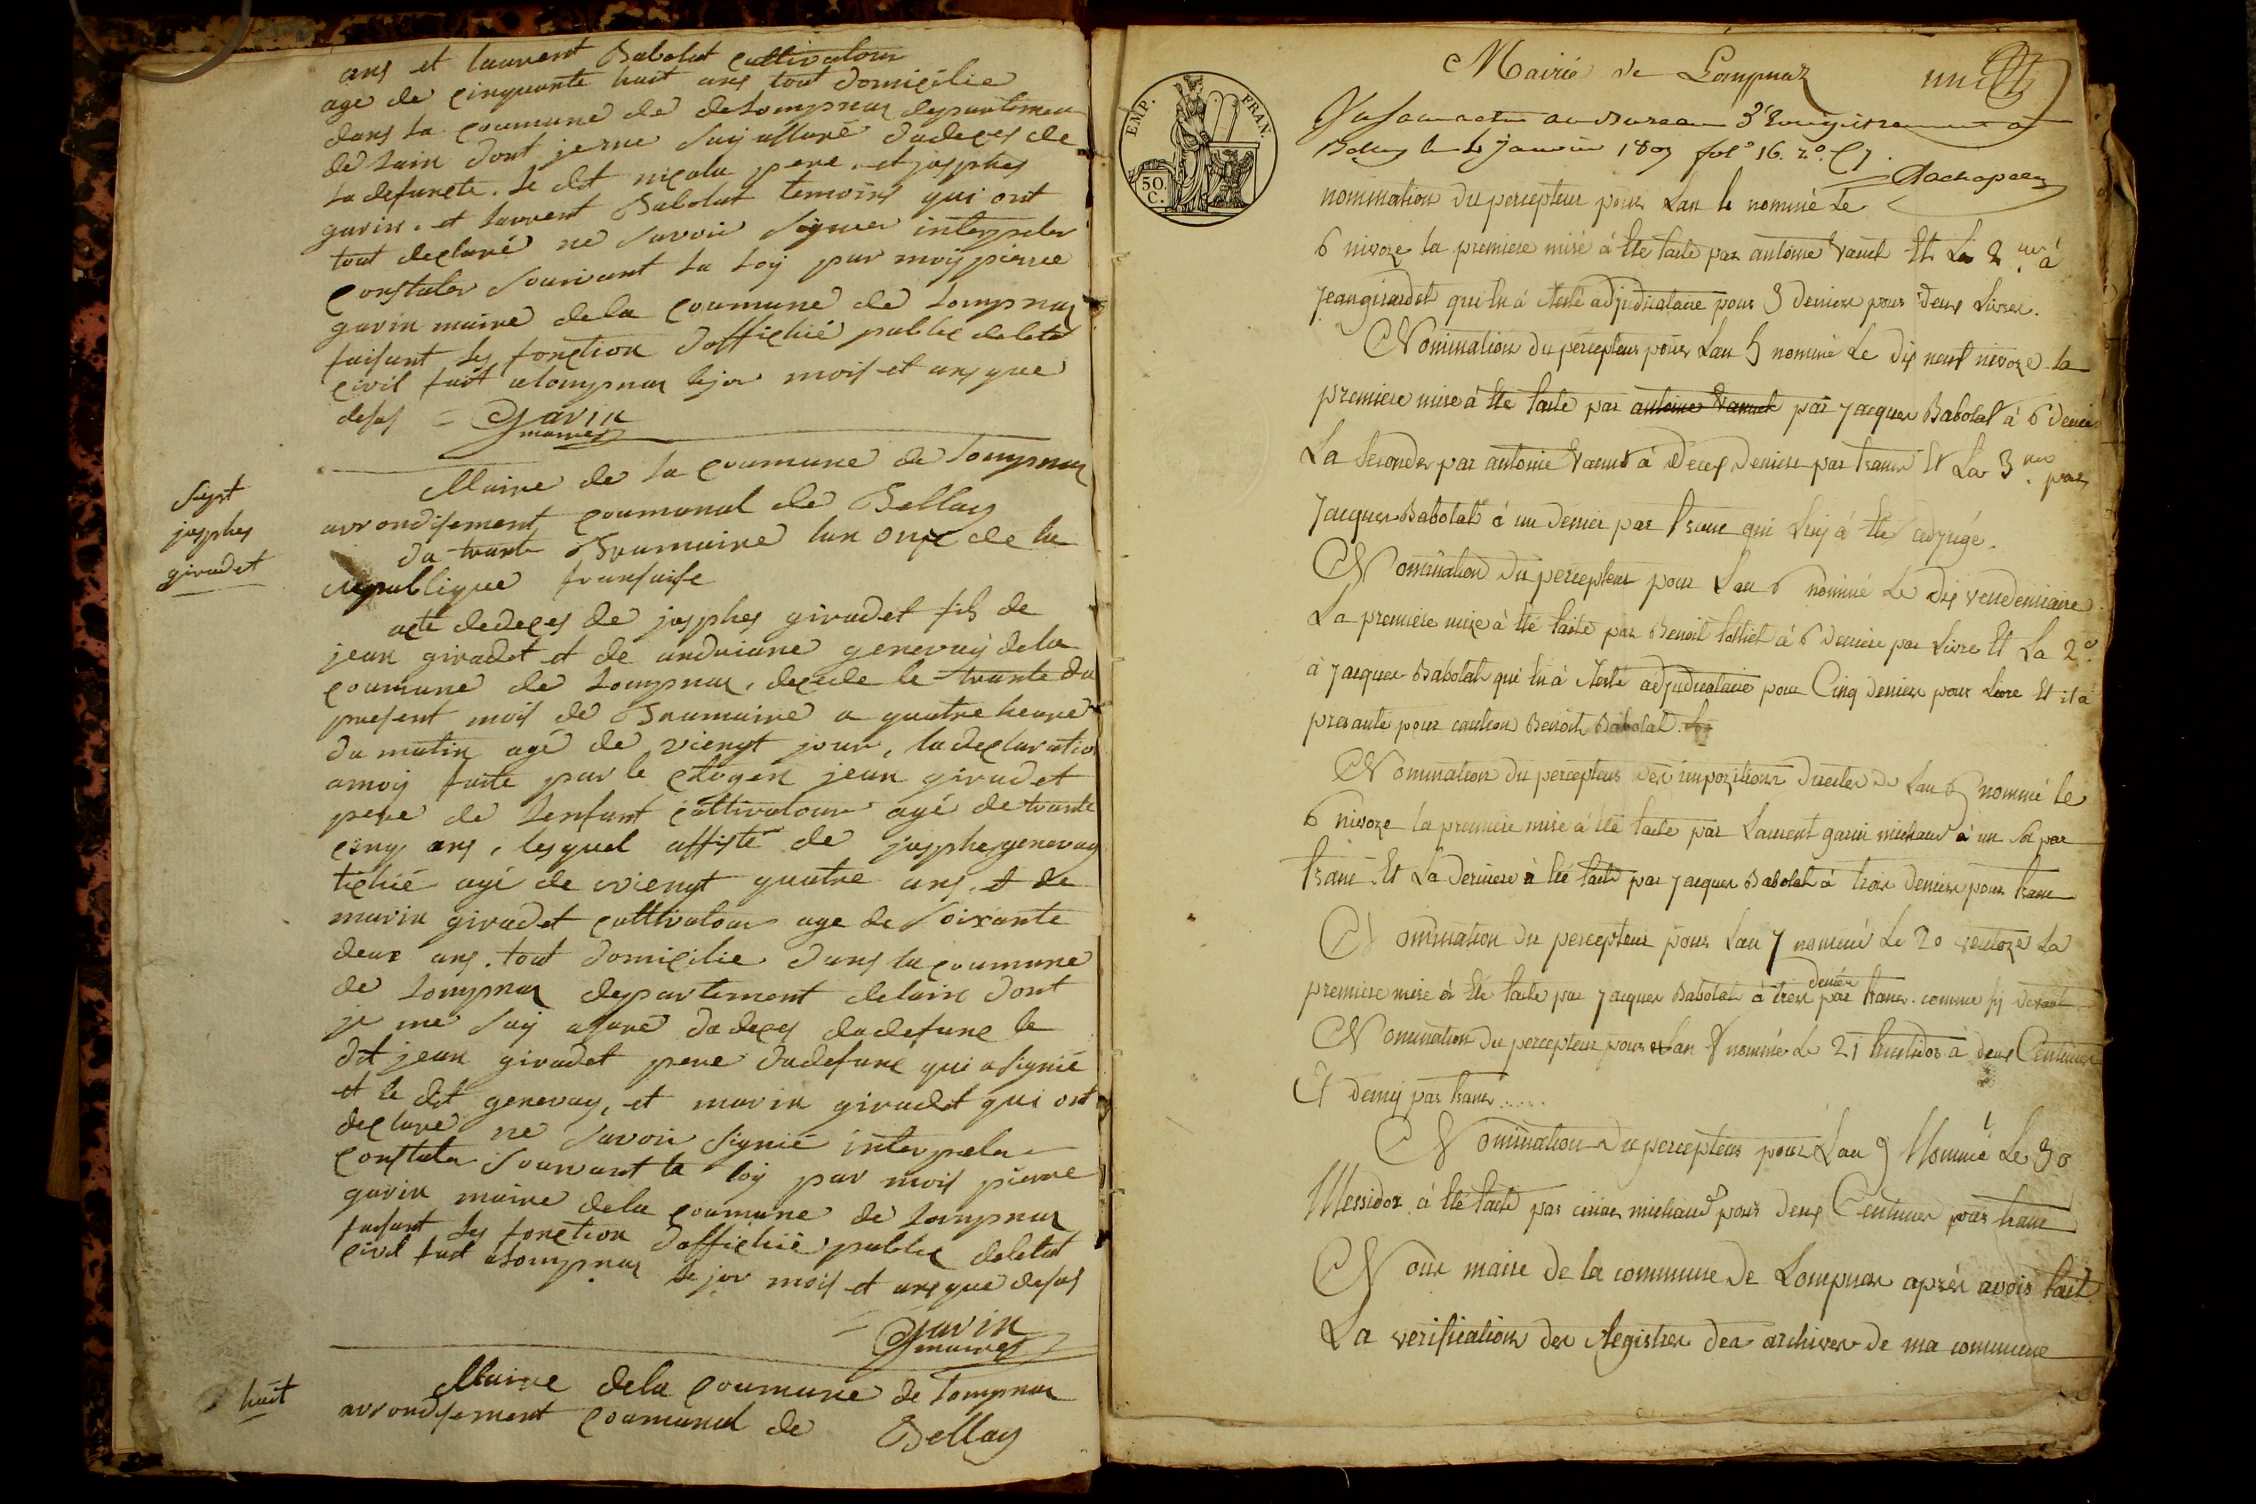 ans et laurent Babolat cultivatour
age de cinquante huit ans tout domicilié
dans la coumune de delompnaz departement
de lain dont je me suis assuré dudeces de
la defuncte. Le dit nicola pere et josphes
gavin. et laurent Babolat temoins qui ont
tout declaré ne savoir signer interpeler
constater souivant la loy par moy pierre
gavin maire dela coumune de lompnaz
faisant les fonction doffichié public deletat
civil fait alompnaz lejor mois et ans que
desus = Gavin
maire
Maire de la coumune de lompnaz
arrondisement coumunal de Bellay
sept
josphes
giradet
du trante Brumaire lan onze de la
republique fransaise
acte dedeces de josphes giradet fils de
jean giradet et de andriane genevay dela
coumune de lompnaz, decede le trante du
present mois de Brumaire a quatre heure
du matin agé de viengt jour, la declaration
amoy faite par le citoyen jean giradet
pere de lenfant cultivatour agé de trante
cinq ans, lesquel assisté de josphes genevay
tichié agé de viengt quatre ans, et de
marin giradet cultivatour age de soixante
deux ans. tout domicilié dans la coumune
de lompnaz departement delain dont
je me suis asuré dudeces dudefunc le
dit jean giradet pere dudefunc qui asignié
et le dit genevay, et marin giradet qui ont
declaré ne savoir signié interpeler
constater souivant la loy par mois pierre
gavin maire dela coumune de lompnaz
faisant les fonction dofficié public deletat
civil fait alompnaz le jor mois et ans que desus
= Gavin
maire
huit
Maire dela coumune de lompnaz
arrondisement coumunal de Bellay
Mairie de Lompnaz
EMP. FRAN.
50.
C.
au Bureau d'Enregistrement a
Belley le 4 janvier 180 fol° 16. r°. C
nomination du percepteur pour Lan le nommé Le
6 nivoze la premiere mise á Ete faite par antoine Et La 2
Jean girardet qui lu á Resté adjudicataire pour 3 deniers pour deux Livres.
Nomination du percepteur pour Lan 5 nommé Le dix neuf nivoze la
premiere mise á Ete faite par antoine par Jacques Babolat á 6 deniers
La Seconde par antoine á deniers par franc Et La 3 par
Jacques Babolat á un denier par franc qui Luy á Eté adjugé.
Nomination du percepteur pour Lan 6 nommé Le dix vendemiaire
La premiere mize á Eté faite par Benoit á 6 deniers par Livre Et La 2e
á Jacques Babolat qui lu á Resté adjudicataire pour Cinq deniers pour Livre Et il á
presanté pour caution Benoit Babolat.
Nomination du percepteur des impozitions directes de Lan 6 nommé le
6 nivoze la premiere mise á Eté faite par Laurent garin michaud á un Sol par
franc. Et La derniere á Eté faite par Jacques Babolat á trois deniers pour franc
Nomination du percepteur pour Lan 7 nommé Le 20 ventoze La
premiere mise á Eté faite par Jacques Babolat á trois denier par franc. comme sy devant
Nomination du percepteur pour Lan 8 nommé Le 21 fructidor á deux Centimes
Et demy par franc.....
Nomination du percepteur pour Lan 9 Nommé Le 30
Messidor á Eté faite par michaud pour deux Centimes par franc
Nous maire de la commune de Lompnas aprés avoir fait
La verification des Registres des archives de ma commune